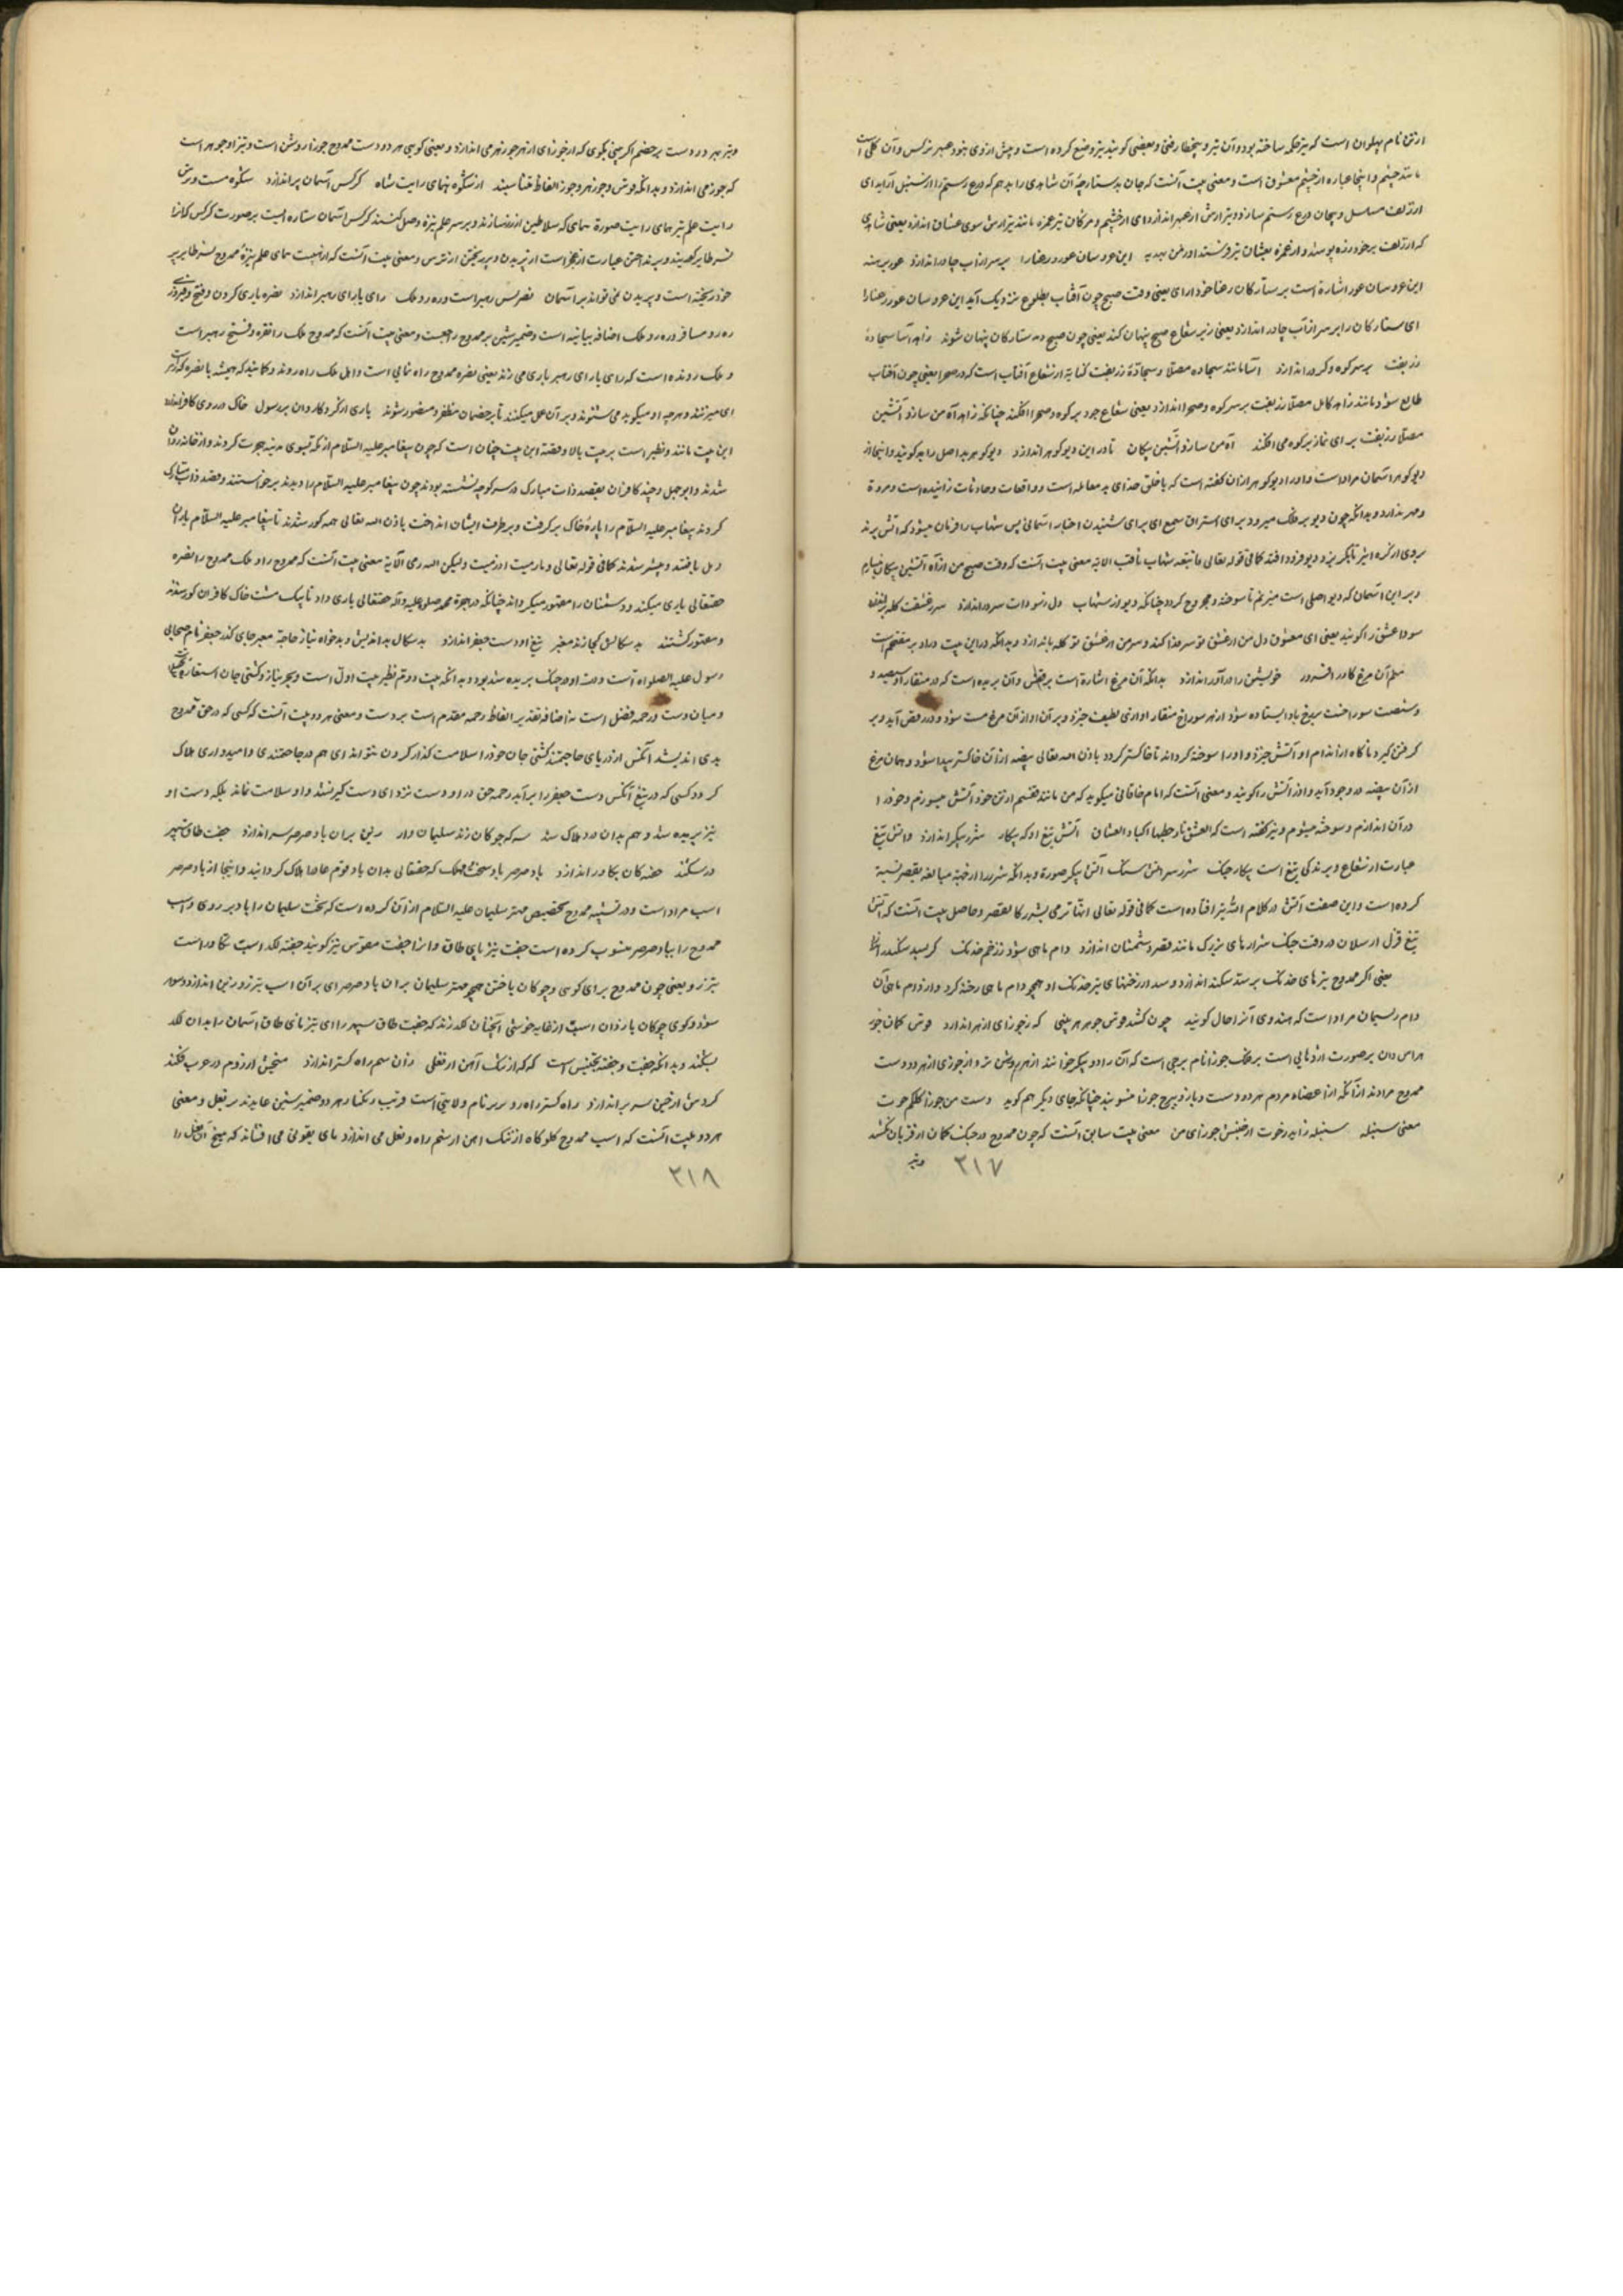 ارژن نام پهلوان است که تیر حکمه ساخته بود و آن تیر و پنجه خطا رفتی و بعضی کویند تیر وضع کرده است و پیش از وی نبود و عبهر نرکس و آن کلی است
مانند چشم و اینجا عباره از چشم معشوق است و معنی بیت آنست که جان بدستارچهٔ آن شاهدی را بدهم که درع رستم را از سنبل آراید ای
از زلف مسلسل و پیچان درع رستم سازد و تیر آرش از عبهر اندازد ای از چشم و مژکان تیر غمزه مانند تیر آرش سوی عشاق اندازد یعنی شاهدی
که از زلف بر خود زره پوشد و از غمزه بعشاق تیر و سنداورمن بیدیه این عروسان عور رعنا را بر سر از آب چادر اندازد عور برهنه
این عروسان عور اشارة است بر ستارکان رعنا خود ارای یعنی وقت صبح چون آفتاب بطلوع نزدیک آید این عروسان عور رعنا را
ای ستارکان را بر سر از آب چادر اندازد یعنی زیر شعاع صبح پنهان کند یعنی چون صبح دمد ستارکان پنهان شوند زاهد آسا سجادهٔ
زربفت بر سر کوه و کردر اندازد آسا مانند سجاده مصلا و سجادهٔ زربفت کنایة از شعاع آفتاب است که در صحرا یعنی چون آفتاب
طالع شود مانند زاهد کامل مصلا زربفت بر سر کوه و صحرا اندازد یعنی شعاع خود بر کوه و صحرا افکند چنانکه زاهد آه من سازد آتشین
مصلا زربفت برای نماز بر کوه می افکند آه من سازد آتشین پیکان تا در این دیو کوهر اندازد دیو کوهر بد اصل را بد کویند و اینجا از
دیو کوهر آسمان مراد است و او را دیو کوهر از آن کفته است که با خلق خدای بد معامله است و واقعات و حادثات زاینده است و مروة
و مهر ندارد و بدانکه چون دیو بر فلک میرود برای استراق سمع ای برای شنیدن اخبار آسمانی پس شهاب را فرمان میشود که آتش برند
بروی از کره اثیر تا بکریزد و دیو فرود افتد کما فی قوله تعالی فاتبعه شهاب ثاقب الایة معنی بیت آنست که وقت صبح من از آه آتشین پیکان میسازم
و بر این آسمان که دیو اصلی است میزنم تا سوخته و مجروح کردد چنانکه دیو از شهاب دل بسودات سر در اندازد سر بعشقت کله بر اندازد
سودا عشق را کویند یعنی ای معشوق دل من از عشق تو سر فدا کند و سر من از عشق تو کله باندازد و بدانکه در این بیت درادر بر مقتحم است
بدل آن مرغ کادر افسرود خویشتن را در آذر اندازد بدانکه آن مرغ اشارة است بر ققنس و آن پرنده است که در منقار او سیصد و
و شصت سوراخست سیخ باد ایستاده شود از هر سوراخ منقار او آوازی لطیف خیزد و بر آن آواز آن مرغ مست شود و در رقص آید و پر
کرفتن کیرد تا کاه از اندام او آتش خیزد و او را سوخته کرداند تا خاکستر کردد باذن الله تعالی بیضه از آن خاکستر پیدا شود و همان مرغ
از آن بیضه در وجود آید و آذر آتش را کویند و معنی آنست که امام خاقانی میکوید که من مانند ققنسم از تن خود آتش میسوزم و خود را
در آن اندازم و سوخته میشوم و نیز کفته است که العشق نار حطبها اکباد العشاق آتش تیغ او که پیکار شرر پیکر اندازد و آتش تیغ
عبارت از شعاع و برندکی تیغ است پیکار جنک شرر سر آتش سنک آتش پیکر صورة و بدانکه شرر را از جهة مبالغه بقصر نسبة
کرده است و این صفت آتش در کلام الله نیز افتاده است کما فی قوله تعالی انها ترمی بشرر کالقصر و حاصل بیت آنست که آتش
تیغ قزل ارسلان در وقت جنک شرارهای بزرک مانند قصر و شمشان اندازد دام ماهی شود ز زخم خدنک کر بسد سکندر اندازد
یعنی اکر ممدوح تیرهای خدنک بر سد سکندر اندازد و سد از رخنهای تیر خدنک او همچو دام ماهی رخنه کردد و از دام ماهی آن
دام ریسمان مراد است که هندوی آنرا جال کویند چون کشد قوس جوهر بینی که ز جوزای ازهر اندازد قوس کمان جوز
هراس دان بر صورت اژدهایی است بر فلک جوزا نام برجی است که آن را دو پیکر خوانند ازهر روشن تر و از جوزی ازهر دو دست
ممدوح مرادند از آنکه از اعضاء مردم هر دو دست و بازو ببرج جوزا منسوبند چنانکه جای دیکر هم کوید دست من جوزا کلکم حوت
معنی سنبله سنبله زاید ز حوت از جنبش جوزای من معنی بیت سابق آنست که چون ممدوح در جنک کمان از قربان کشد
وتیر
۳۱۷
وتیر بهر دو دست بر خصم اکر بینی بکوی که از جوزای ازهر جوزهر می اندازد و معنی کویی هر دو دست ممدوح جوزا روشن است و تیر او جوهر است
که جوز می اندازد و بدانکه قوس و جوزهر و جوزا الفاظ متناسبند از شکوه همای رایت شاه کرکس آسمان پر اندازد شکوه مست و ترس
رایت علم تیر همای رایت صورة همای که سلاطین از زر سازند و بر سر علم نیزه وصل کنند کرکس آسمان ستاره ایست بر صورت کرکس که آنرا
نسر طایر کویند و پر انداختن عبارت از عجز است از پریدن و پر ریختن از ترس و معنی بیت آنست که از هیبت همای علم نیزهٔ ممدوح نسر طایر پر
خود ریخته است و پریدن نمی تواند بر آسمان نصرتش رهبر است و ره رو ملک رای یارای رهبر اندازد نصره یاری کردن و فتح و فیروزی
ره رو مسافر و ره رو ملک اضافه بیانیه است و ضمیر شین بر ممدوح راجعست و معنی بیت آنست که ممدوح ملک را نصره و فتح رهبر است
و ملک رونده است که رای یارای رهبر یاری می زند یعنی نصره ممدوح راه نمایی است و اهل ملک راه روند و کانیند که همیشه با نصره که رهبر است
ای میزنند و هرچه او میکوید می شنوند و بر آن عمل میکنند تا بر خصمان مظفر و منصور شوند یاری از کردکار دان بر رسول خاک در روی کافر اندازد
این بیت مانند و نظیر است بر بیت بالا و قصهٔ این بیت چنان است که چون پیغامبر علیه السلام از مکه بسوی مدینه هجرت کردند و از خانه روان
شدند و ابوجهل و چند کافران بقصد ذات مبارک در سر کوچه نشسته بودند چون پیغامبر علیه السلام را دیدند برخواستند و قصد ذات مبارک
کردند پیغامبر علیه السلام را پارهٔ خاک بر کرفت و بر طرف ایشان انداخت باذن الله تعالی همه کور شدند تا پیغامبر علیه السلام یاران
دل یافتند و پیشتر شدند کما فی قوله تعالی وما رمیت اذ رمیت ولیکن الله رمی الآیة معنی بیت آنست که ممدوح را و ملک ممدوح را نصره
حقتعالی یاری میکند و دشمنان را مقهور میکرداند چنانکه در هجرة محمد صلی الله علیه وآله حقتعالی یاری داد تا بیک مشت خاک کافران کور شدند
و مقهور کشتند بد سکالش کجا زند معبر تیغ او دست جعفر اندازد بد سکال بد اندیش و بدخواه نیاز حاجة معبر جای کذر جعفر نام صحابی
رسول علیه الصلواة است دست او در جنک بریده شد بود و بدانکه بیت دوم نظیر بیت اول است و بحر نیاز و کشتی جان استعاره است
و میان دست و رحمه فصل است نه اضافه تقدیر الفاظ رحمه مقدم است بر دست و معنی هر دو بیت آنست که کسی که در حق ممدوح
بدی اندیشد آنکس از دریای حاجتمند کشتی جان خود را سلامت کذار کردن نتواند ای هم در حاجتمندی و امیدواری هلاک
کردد کسی که در تیغ آنکس دست جعفر را برآید رحمه حق در او دست نزد ای دست کیر نشد و او سلامت نماند بلکه دست او
نیز بریده شد و هم بدان درد هلاک شد شه که چوکان زند سلیمان وار زین بران باد صرصر اندازد جفت طاق سپهر
در شکند جفته کان تکاور اندازد باد صرصر باد سخت مهلک که حقتعالی بدان باد قوم عاد را هلاک کردانید و اینجا از باد صرصر
اسب مراد است و در نسبة ممدوح تخصیص مهتر سلیمان علیه السلام از آن کرده است که تخت سلیمان را باد بر روی و اسب
ممدوح را بباد صرصر منسوب کرده است جفت نیز پای طاق و از اجفت مقوس نیز کویند جفته لکد اسب تکاور است
تیزرو یعنی چون ممدوح برای کوی و چوکان باختن همچو مهتر سلیمان بران باد صرصر ای بر آن اسب تیزرو زین اندازد و سوار
شود و کوی چوکان باز دان اسب از غایه خوشی آنچنان لکد زند که جفت طاق سپهر را ای تیز مانی طاق آسمان را بدان لکد
بشکند و بدانکه جفت و جفته تجنیس است که که از تنک آهن ار نعلی زان سم راه کستر اندازد منجیق ار ز دوم در عرب فکند
کردش از چین سر براندازد راه کستر راه رو بربر نام ولایتی است و ترتیب ریکناره هر دو ضمیر شین عایدند بر نعل و معنی
هر دو بیت آنست که اسب ممدوح کلوکاه از تنک آهن ار سم راه رو نعل می اندازد بای بقوتی می افشاند که میخ آن نعل را
۳۱۸